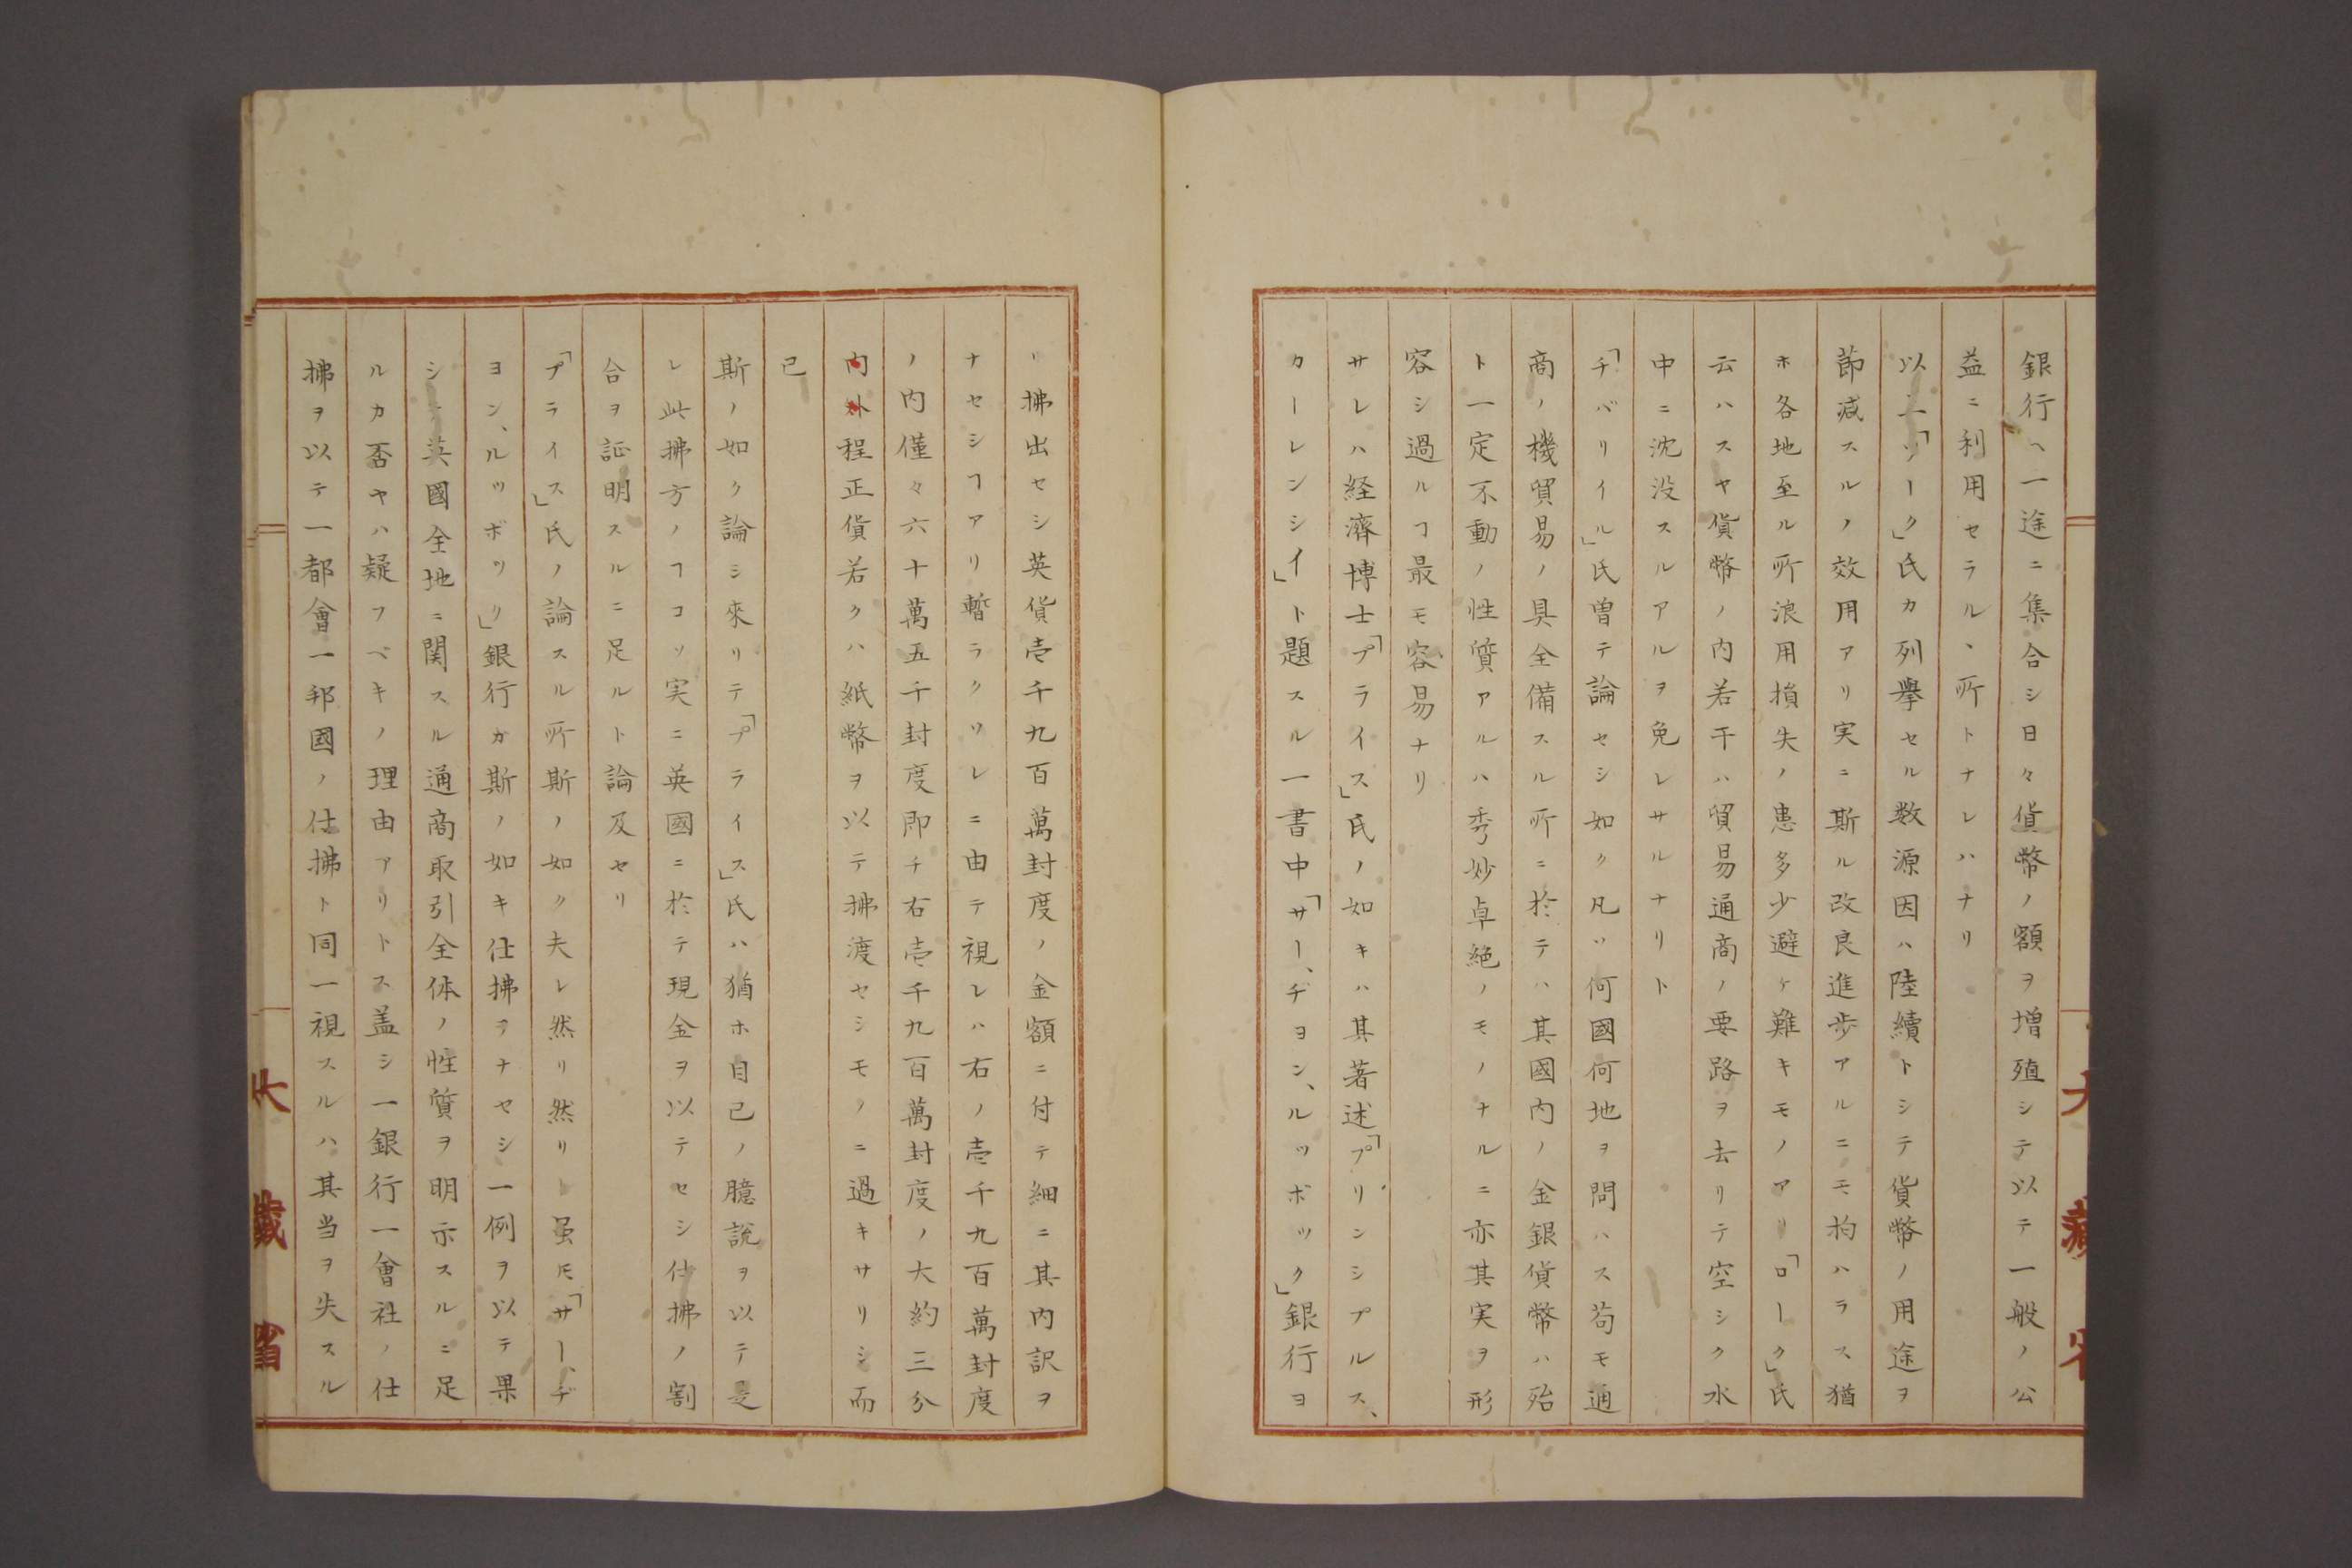 銀行ヘ一途ニ集合シ日々貨幣ノ額ヲ増殖シテ以テ一般ノ公
益ニ利用セラル、所トナレハナリ
以上「ソーク」氏カ列擧セル数源因ハ陸續トシテ貨幣ノ用途ヲ
節減スルノ效用アリ実ニ斯ル改良進歩アルニモ拘ハラス猶
ホ各地至ル所浪用損失ノ患多少避ケ難キモノアリ「ローク」氏
云ハスヤ貨幣ノ内若干ハ貿易通商ノ要路ヲ去リテ空シク水
中ニ沈没スルアルヲ免レサルナリト
「チバリイル」氏曽テ論セシ如ク凡ソ何國何地ヲ問ハス苟モ通
商ノ機貿易ノ具全備スル所ニ於テハ其國内ノ金銀貨幣ハ殆
ト一定不動ノ性質アルハ秀妙卓絶ノモノナルニ亦其実ヲ形
容シ過ルヿ最モ容易ナリ
サレハ経濟博士「プライス」氏ノ如キハ其著述「プリンシプルス、
カーレンシイ」ト題スル一書中「サー、ヂヨン、ルツボツク」銀行ヨ
リ拂出セシ英貨壱千九百萬封度ノ金額ニ付テ細ニ其内訳ヲ
ナセシヿアリ暫ラクソレニ由テ視レハ右ノ壱千九百萬封度
ノ内僅々六十萬五千封度即チ右壱千九百萬封度ノ大約三分
内外程正貨若クハ紙幣ヲ以テ拂渡セシモノニ過キサリシ而
已
斯ノ如ク論シ來リテ「プライス」氏ハ猶ホ自己ノ臆説ヲ以テ是
レ此拂方ノヿコソ実ニ英國ニ於テ現金ヲ以テセシ仕拂ノ割
合ヲ証明スルニ足ルト論及セリ
「プライス」氏ノ論スル所斯ノ如ク夫レ然リ然リト虽𪜈「サー、ヂ
ヨン、ルツボツク」銀行カ斯ノ如キ仕拂ヲナセシ一例ヲ以テ果
シテ英國全地ニ関スル通商取引全体ノ性質ヲ明示スルニ足
ルカ否ヤハ疑フベキノ理由アリトス盖シ一銀行一會社ノ仕
拂ヲ以テ一都會一邦國ノ仕拂ト同一視スルハ其当ヲ失スル
大藏省